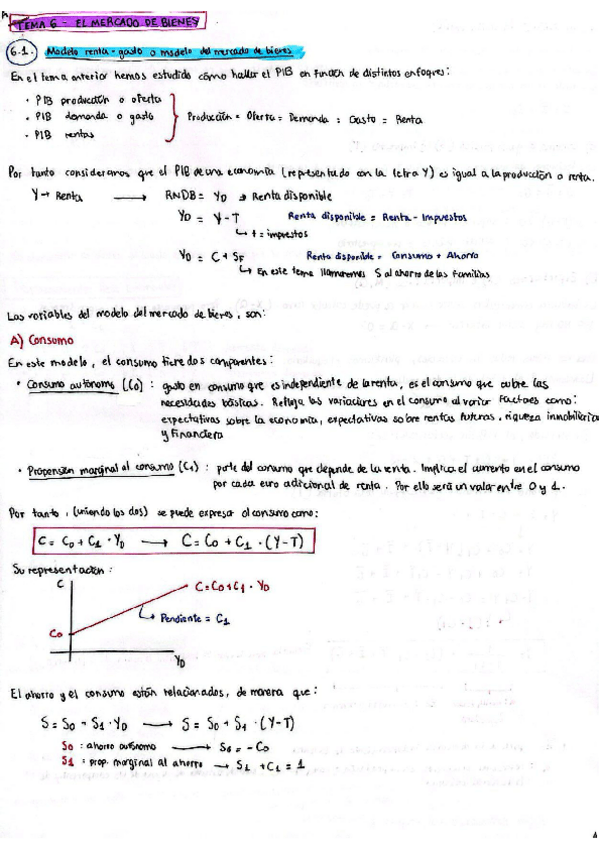 TEMA 6 - EL MERCADO DE BIENES
6.1. Modelo renta-gasto o modelo del mercado de bienes
En el tema anterior hemos estudiado cómo hallar el PIB en función de distintos enfoques:
· PIB producción o oferta
· PIB demanda o gasto
· PIB rentas
Producción = Oferta = Demanda = Gasto = Renta
Por tanto consideramos que el PIB de una economía (representado con la letra Y) es igual a la producción o renta.
Y → Renta → RNDB = YD → Renta disponible
YD = Y - T Renta disponible = Renta - Impuestos
↳ t = impuestos
YD = C + SF Renta disponible = Consumo + Ahorro
↳ En este tema llamaremos S al ahorro de las familias
Las variables del modelo del mercado de bienes, son:
A) Consumo
En este modelo, el consumo tiene dos componentes:
· Consumo autónomo (C0): gasto en consumo que es independiente de la renta, es el consumo que cubre las
necesidades básicas. Refleja las variaciones en el consumo al variar factores como:
expectativas sobre la economía, expectativas sobre rentas futuras, riqueza inmobiliaria
y financiera
· Propensión marginal al consumo (C1): parte del consumo que depende de la renta. Implica el aumento en el consumo
por cada euro adicional de renta. Por ello será un valor entre 0 y 1.
Por tanto, (uniendo los dos) se puede expresar el consumo como:
C = C0 + C1 · YD → C = C0 + C1 · (Y-T)
Su representación:
C
C = C0 + C1 · YD
↳ Pendiente = C1
C0
YD
El ahorro y el consumo están relacionados, de manera que:
S = S0 + S1 · YD → S = S0 + S1 · (Y-T)
S0 : ahorro autónomo → S0 = -C0
S1 : prop. marginal al ahorro → S1 + C1 = 1